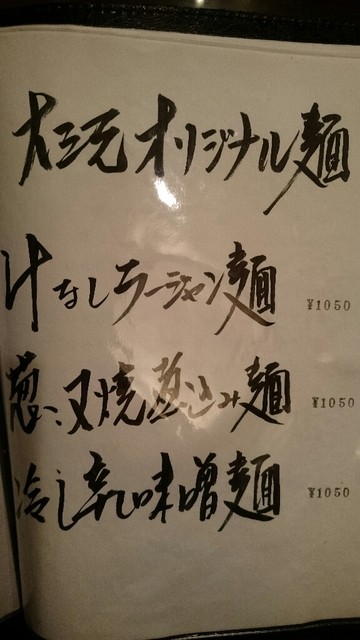 大三元オリジナル麺
汁なしラージャン麺 ¥1050
葱・叉焼葱込み麺 ¥1050
冷し辛し味噌麺 ¥1050